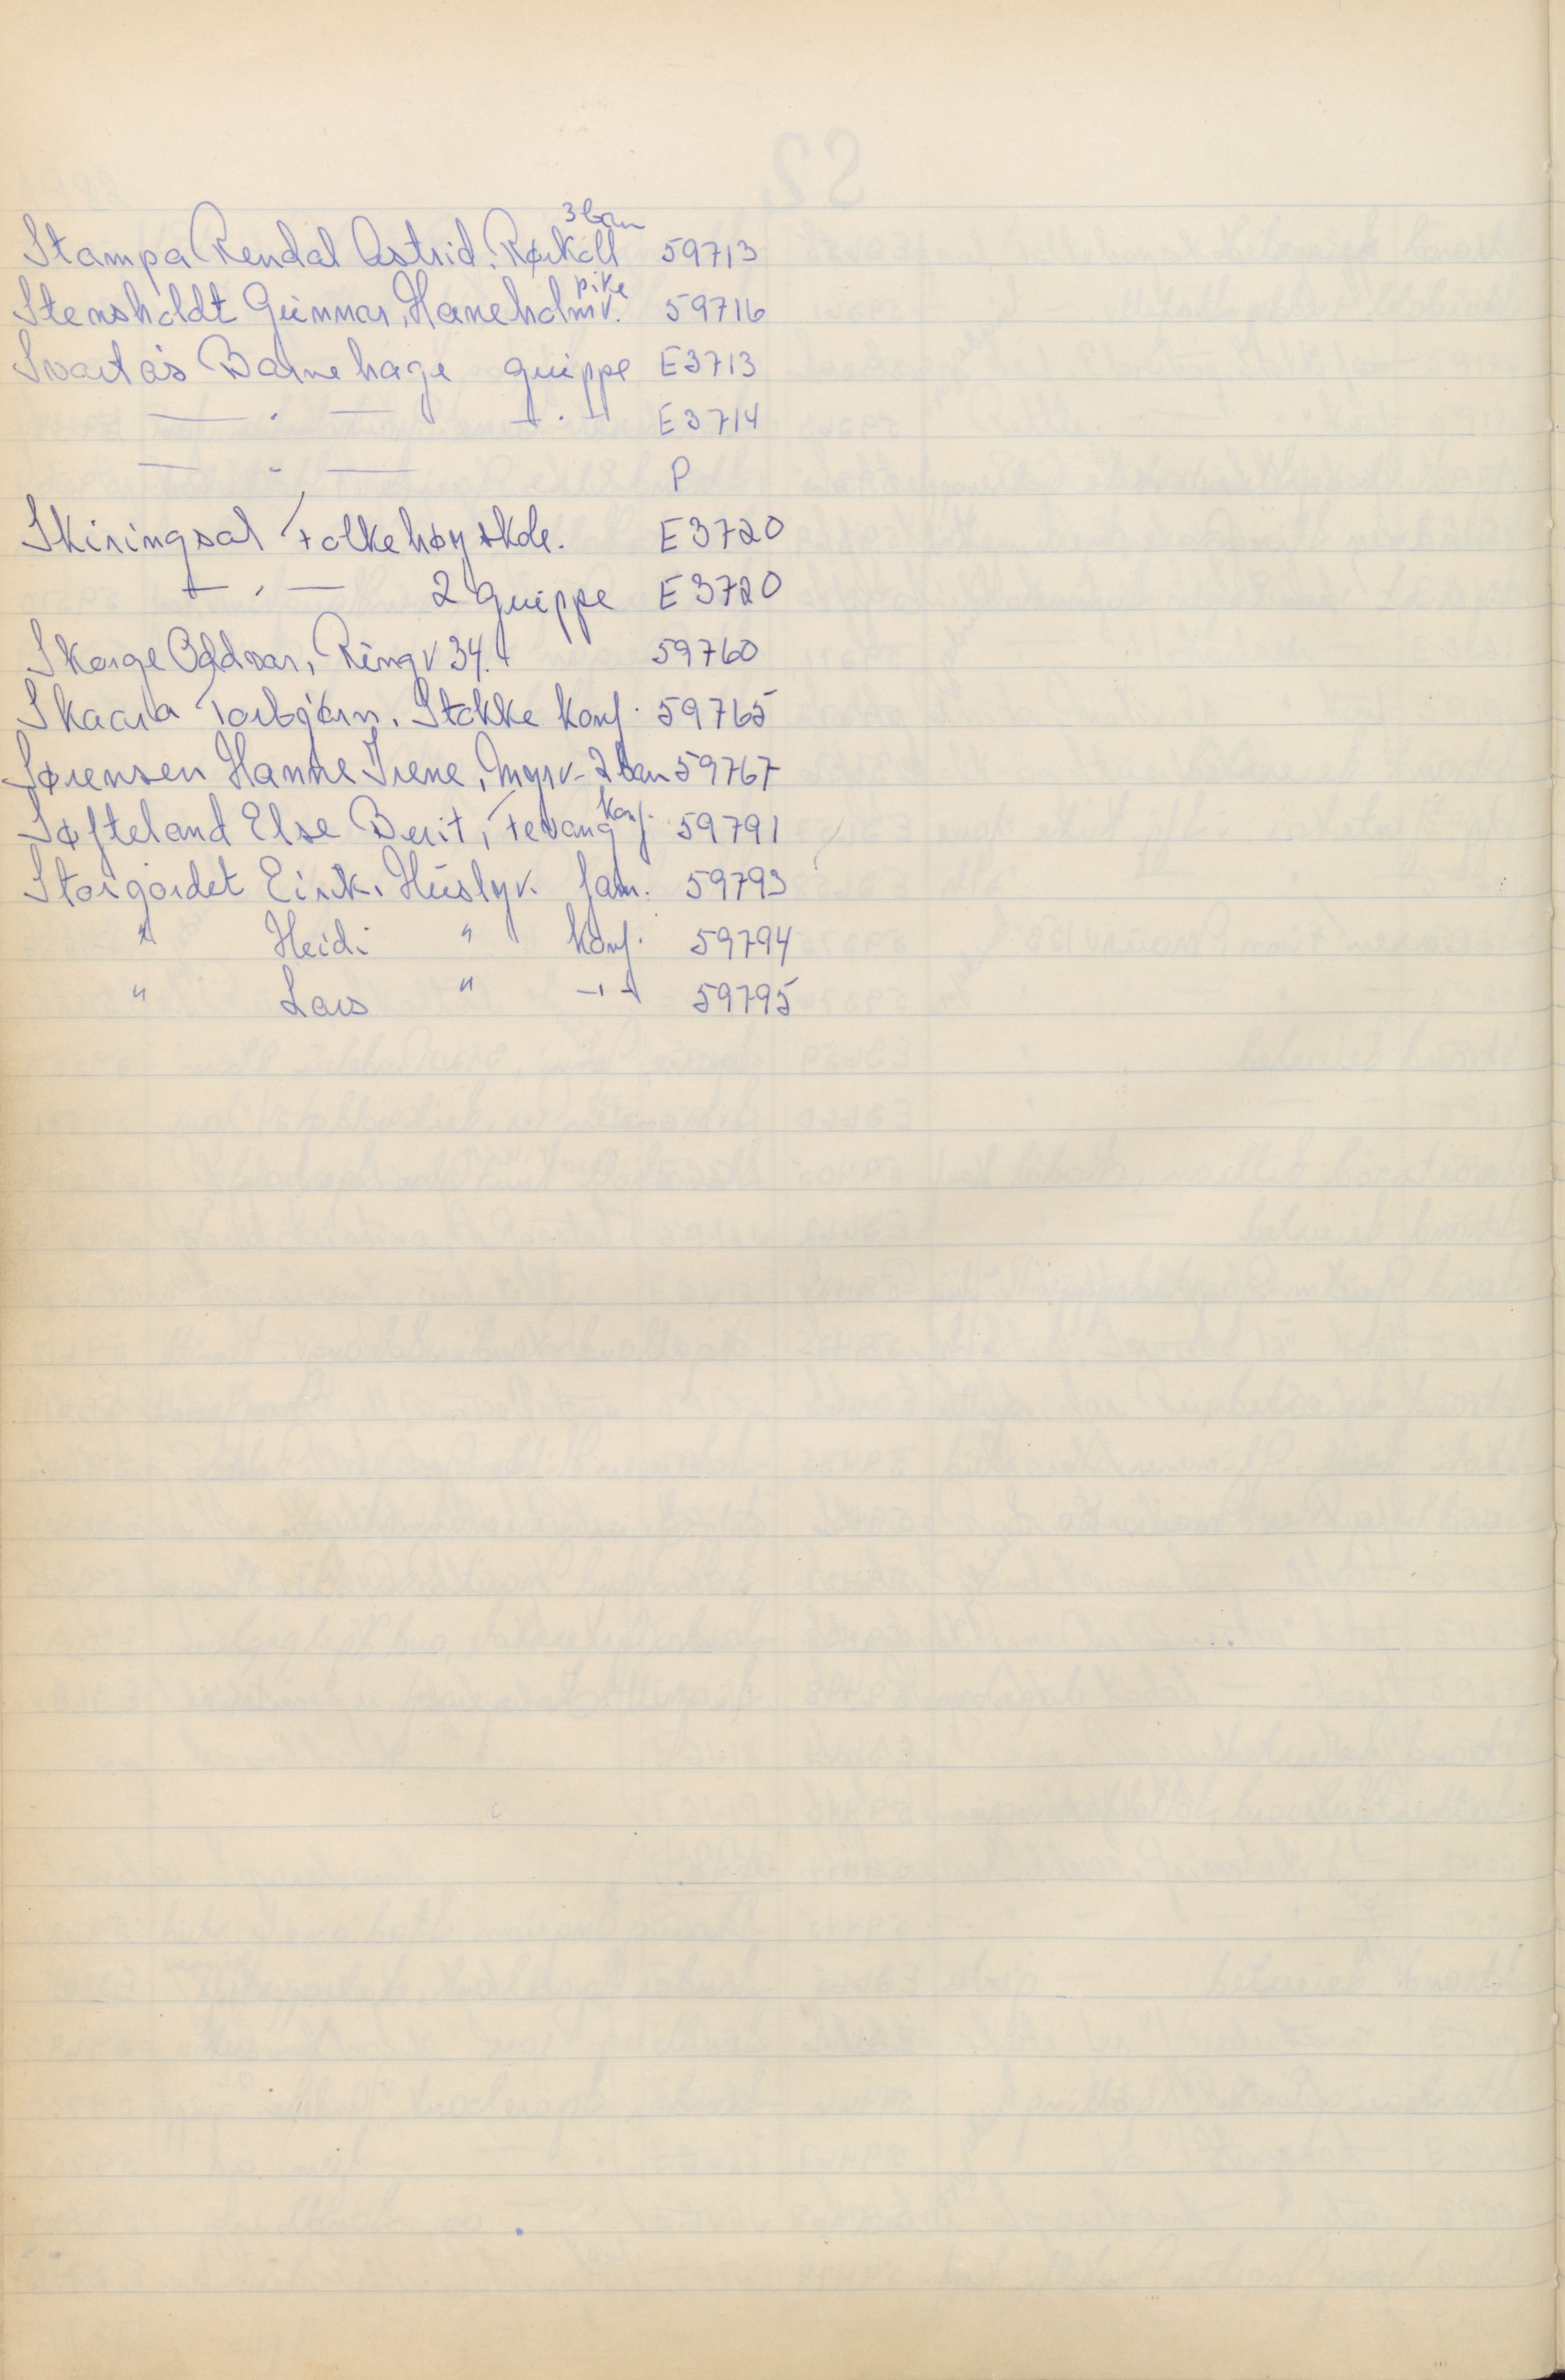 Stampa Rendal Astrid. Rørkoll 3 barn 59713
Stensholdt Gunnar, Haneholmv. pike 59716
Svartås Barnehage gruppe E3713
— " — — " — E3714
— " — P
Skiringsal Folkehøyskole. E3720
— " — 2 gruppe E3720
Skorge Oddvar, Ringv 34. 59760
Skaara Torbjørn. Stokke konf. 59765
Sørensen Hanne Irene, Myrv. 2 barn 59767
Søfteland Else Berit, Fevang konf. 59791
Storgordet Eirik. Huslyv. fam. 59793
" Heidi " konf. 59794
" Lars " — " — 59795